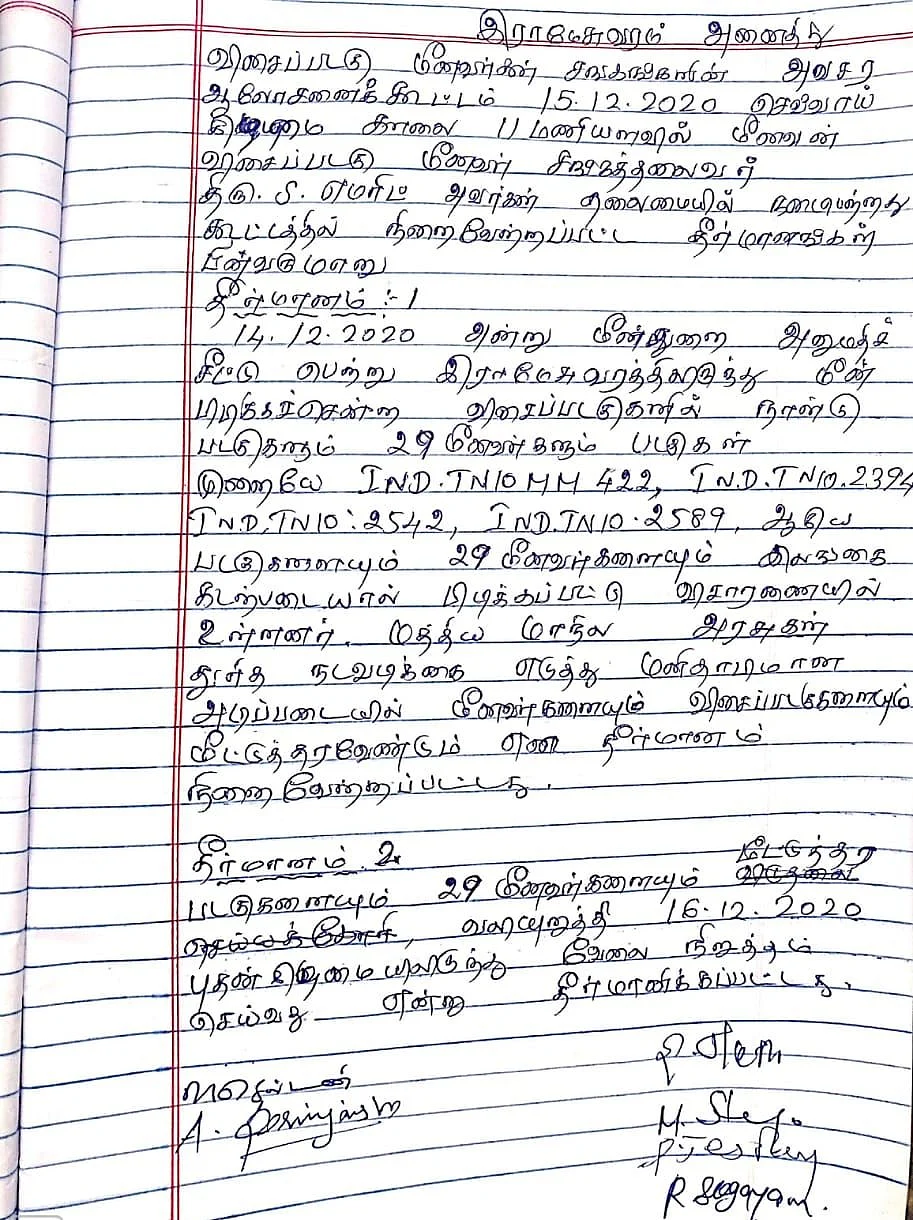 இராமேசுவரம் அனைத்து
விசைப்படகு மீனவர்கள் சங்கங்களின் அவசர
ஆலோசனைக் கூட்டம் 15.12.2020 செவ்வாய்
கிழமை காலை 11 மணியளவில் மீனவன்
விசைப்படகு மீனவர் சங்கத்தலைவர்
திரு. S. எமரிட் அவர்கள் தலைமையில் நடைபெற்றது
கூட்டத்தில் நிறைவேற்றப்பட்ட தீர்மானங்கள்
பின்வருமாறு
தீர்மானம் :- 1
14.12.2020 அன்று மீன்துறை அனுமதிச்
சீட்டு பெற்று இராமேசுவரத்திலிருந்து மீன்
பிடிக்கச்சென்ற விசைப்படகுகளில் நான்கு
படகுகளும் 29 மீனவர்களும் படகுகள்
முறையே IND.TN10 MM 422, IND.TN10.2394
IND.TN10:2542, IND.TN10.2589, ஆகிய
படகுகளையும் 29 மீனவர்களையும் இலங்கை
கடற்படையால் பிடிக்கப்பட்டு விசாரணையில்
உள்ளனர். மத்திய மாநில அரசுகள்
துரித நடவடிக்கை எடுத்து மனிதாபிமான
அடிப்படையில் மீனவர்களையும் விசைப்படகுகளையும்
மீட்டுத்தரவேண்டும் என தீர்மானம்
நிறைவேற்றப்பட்டது.
தீர்மானம் 2
மீட்டுத்தர
படகுகளையும் 29 மீனவர்களையும் விடுதலை
செய்யக்கோரி, வலியுறுத்தி 16.12.2020
புதன் கிழமையிலிருந்து வேலை நிறுத்தம்
செய்வது என்று தீர்மானிக்கப்பட்டது.
A.
M.
R Sagayam.